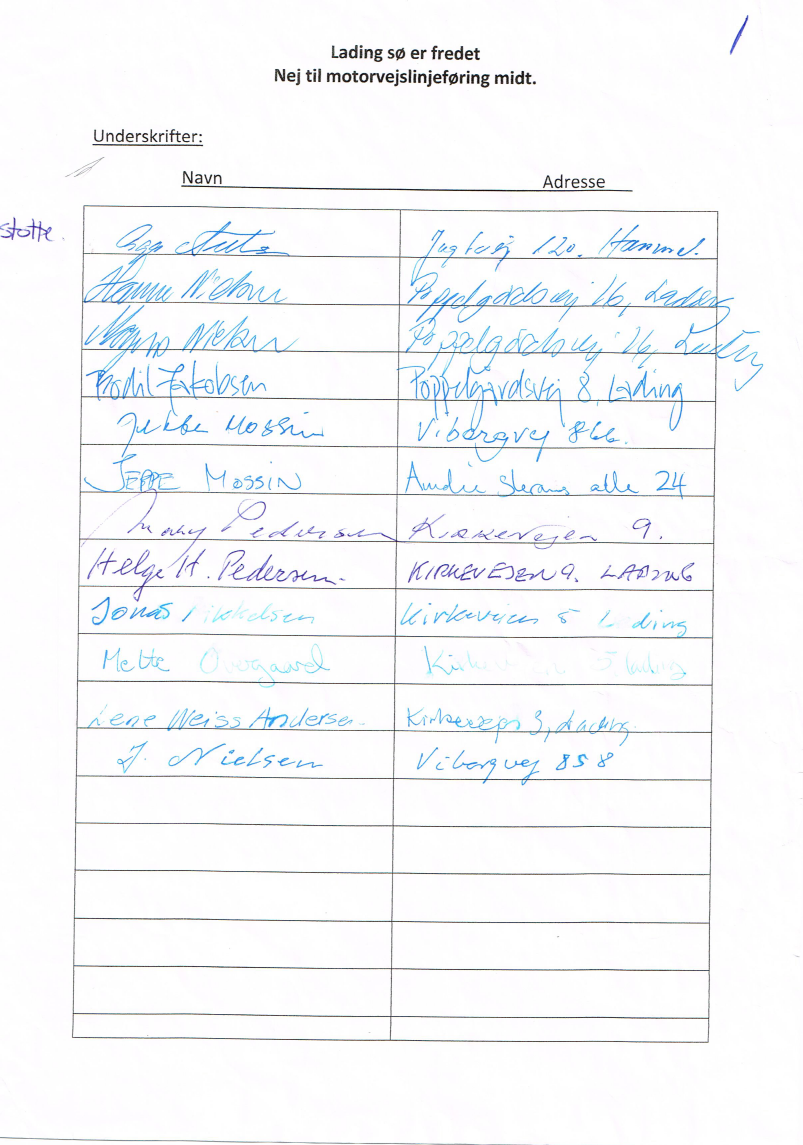 1
Lading sø er fredet
Nej til motorvejslinjeføring midt.
Underskrifter:
Navn Adresse
støtte.
120. Hammel.
Hanne Nielsen Poppelgårdsvej 16, Lading
Mogens Nielsen Poppelgårdsvej 16, Lading
Bodil Jakobsen Poppelgårdsvej 8, Lading
Mossin Viborgvej 866.
JEPPE MOSSIN alle 24
Pedersen Kirkevejen 9.
Helge H. Pedersen. KIRKEVEJEN 9. LADING
Jonas Mikkelsen Kirkevejen 5 Lading
Mette Overgaard Kirkevejen 5 lading
Lene Weiss Andersen. Kirkevejen 3, Lading.
J. Nielsen Viborgvej 858